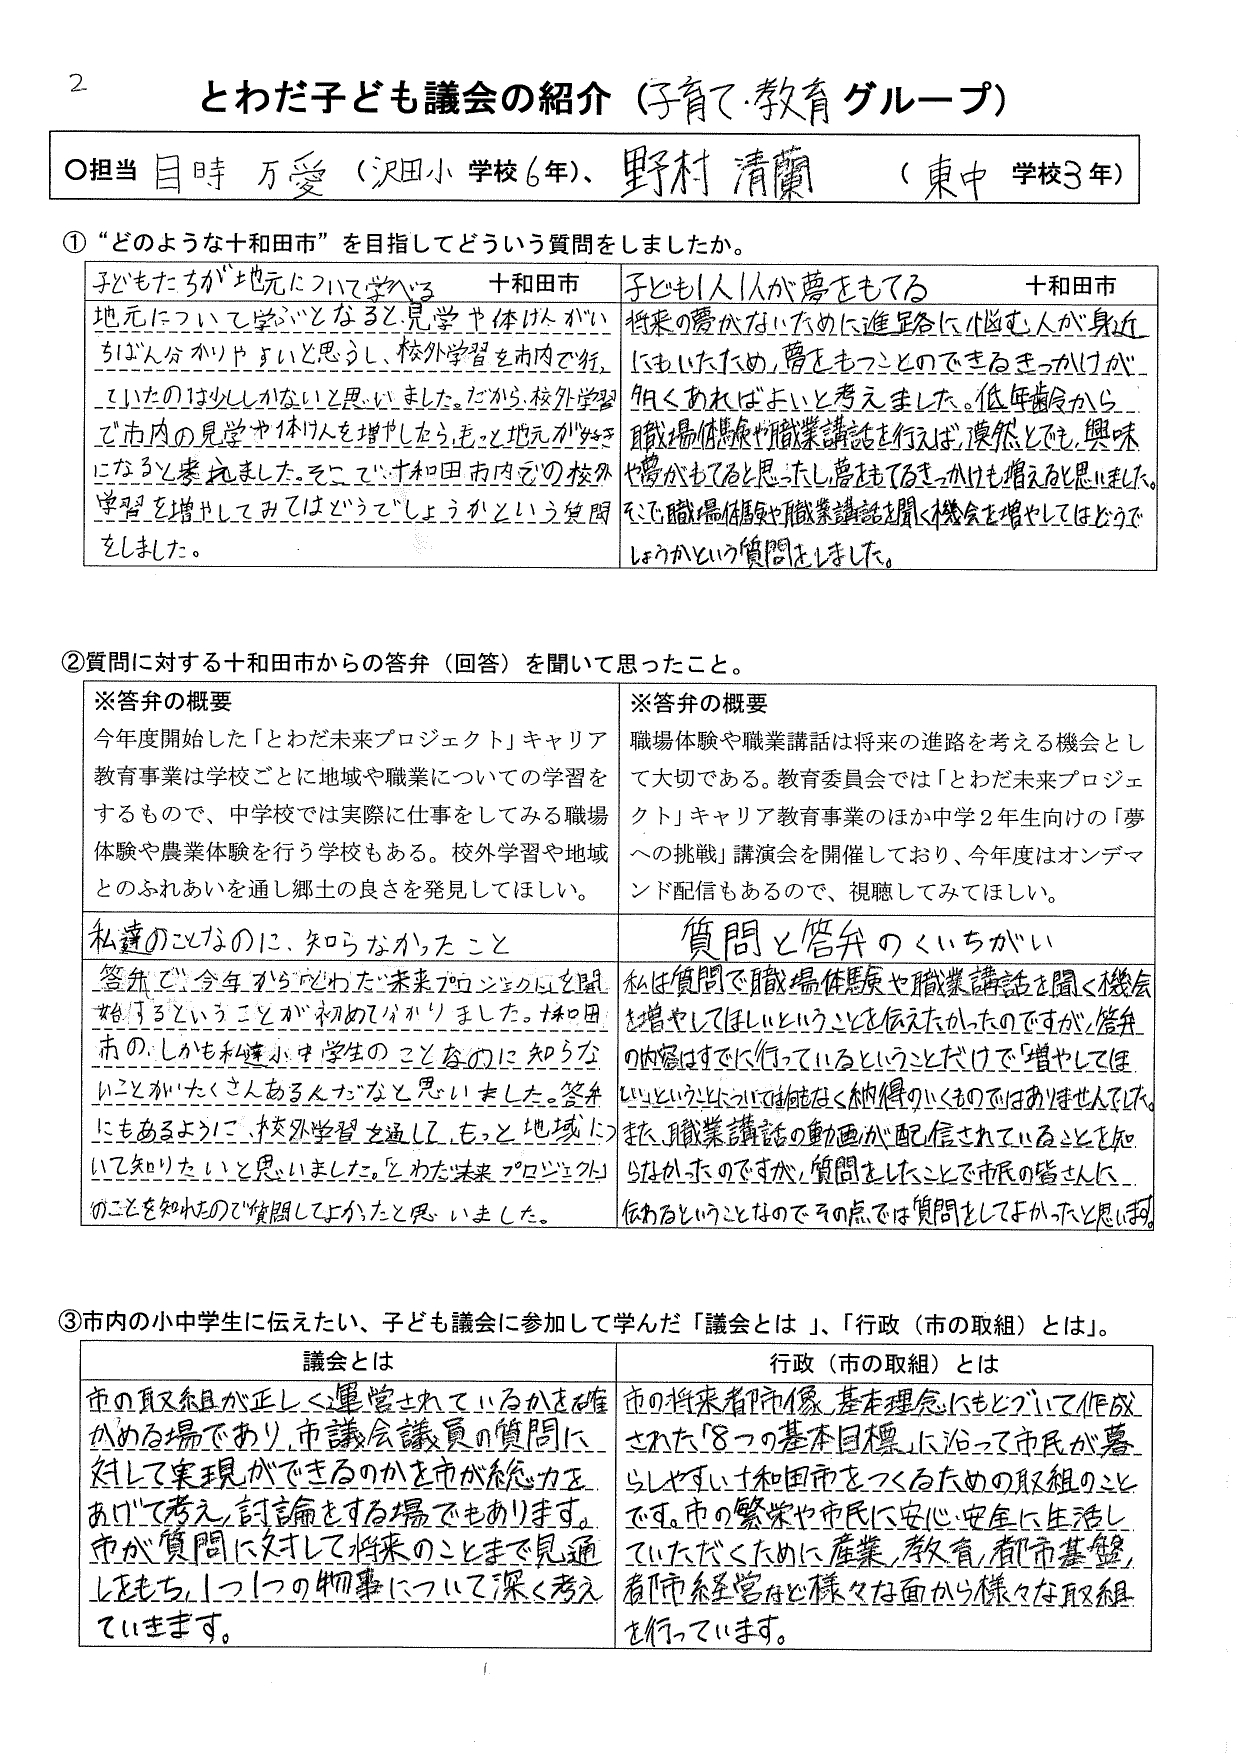 2
とわだ子ども議会の紹介（子育て・教育 グループ）
○担当 目時 万愛（沢田小 学校6年）、野村 清蘭 （東中 学校3年）
①“どのような十和田市”を目指してどういう質問をしましたか。
子どもたちが地元について学べる 十和田市
地元について学ぶとなると、見学や体けんがい
ちばん分かりやすいと思うし、校外学習を市内で行っ
ていたのは少ししかないと思いました。だから、校外学習
で市内の見学や体けんを増やしたら、もっと地元が好き
になると考えました。そこで、十和田市内での校外
学習を増やしてみてはどうでしょうかという質問
をしました。
子ども1人1人が夢をもてる 十和田市
将来の夢がないために進路に悩む人が身近
にもいたため、夢をもつことのできるきっかけが
多くあればよいと考えました。低年齢から
職場体験や職業講話を行えば、漠然とでも、興味
や夢がもてると思ったし、夢をもてるきっかけも増えると思いました。
そこで、職場体験や職業講話を聞く機会を増やしてはどうで
しょうかという質問をしました。
②質問に対する十和田市からの答弁（回答）を聞いて思ったこと。
※答弁の概要
今年度開始した「とわだ未来プロジェクト」キャリア
教育事業は学校ごとに地域や職業についての学習を
するもので、中学校では実際に仕事をしてみる職場
体験や農業体験を行う学校もある。校外学習や地域
とのふれあいを通し郷土の良さを発見してほしい。
※答弁の概要
職場体験や職業講話は将来の進路を考える機会とし
て大切である。教育委員会では「とわだ未来プロジェ
クト」キャリア教育事業のほか中学２年生向けの「夢
への挑戦」講演会を開催しており、今年度はオンデマ
ンド配信もあるので、視聴してみてほしい。
私達のことなのに、知らなかったこと
答弁で、今年から「とわだ未来プロジェクト」を開
始するということが初めて分かりました。十和田
市の、しかも私達小中学生のことなのに知らな
いことがたくさんあるんだなと思いました。答弁
にもあるように、校外学習を通して、もっと地域につ
いて知りたいと思いました。「とわだ未来プロジェクト」
のことを知れたので質問してよかったと思いました。
質問と答弁のくいちがい
私は質問で職場体験や職業講話を聞く機会
を増やしてほしいということを伝えたかったのですが、答弁
の内容はすでに行っているということだけで「増やしてほ
しい」ということについては何もなく納得のいくものではありませんでした。
また、職業講話の動画が配信されていることを知
らなかったのですが、質問をしたことで市民の皆さんに
伝わるということなのでその点では質問をしてよかったと思います。
③市内の小中学生に伝えたい、子ども議会に参加して学んだ「議会とは 」、「行政（市の取組）とは」。
議会とは
市の取組が正しく運営されているかを確
かめる場であり、市議会議員の質問に
対して実現ができるのかを市が総力を
あげて考え、討論をする場でもあります。
市が質問に対して将来のことまで見通
しをもち、1つ1つの物事について深く考え
ていきます。
行政（市の取組）とは
市の将来都市像、基本理念にもとづいて作成
された「8つの基本目標」に沿って市民が暮
らしやすい十和田市をつくるための取組のこと
です。市の繁栄や市民に安心・安全に生活し
ていただくために産業、教育、都市基盤、
都市経営など様々な面から様々な取組
を行っています。